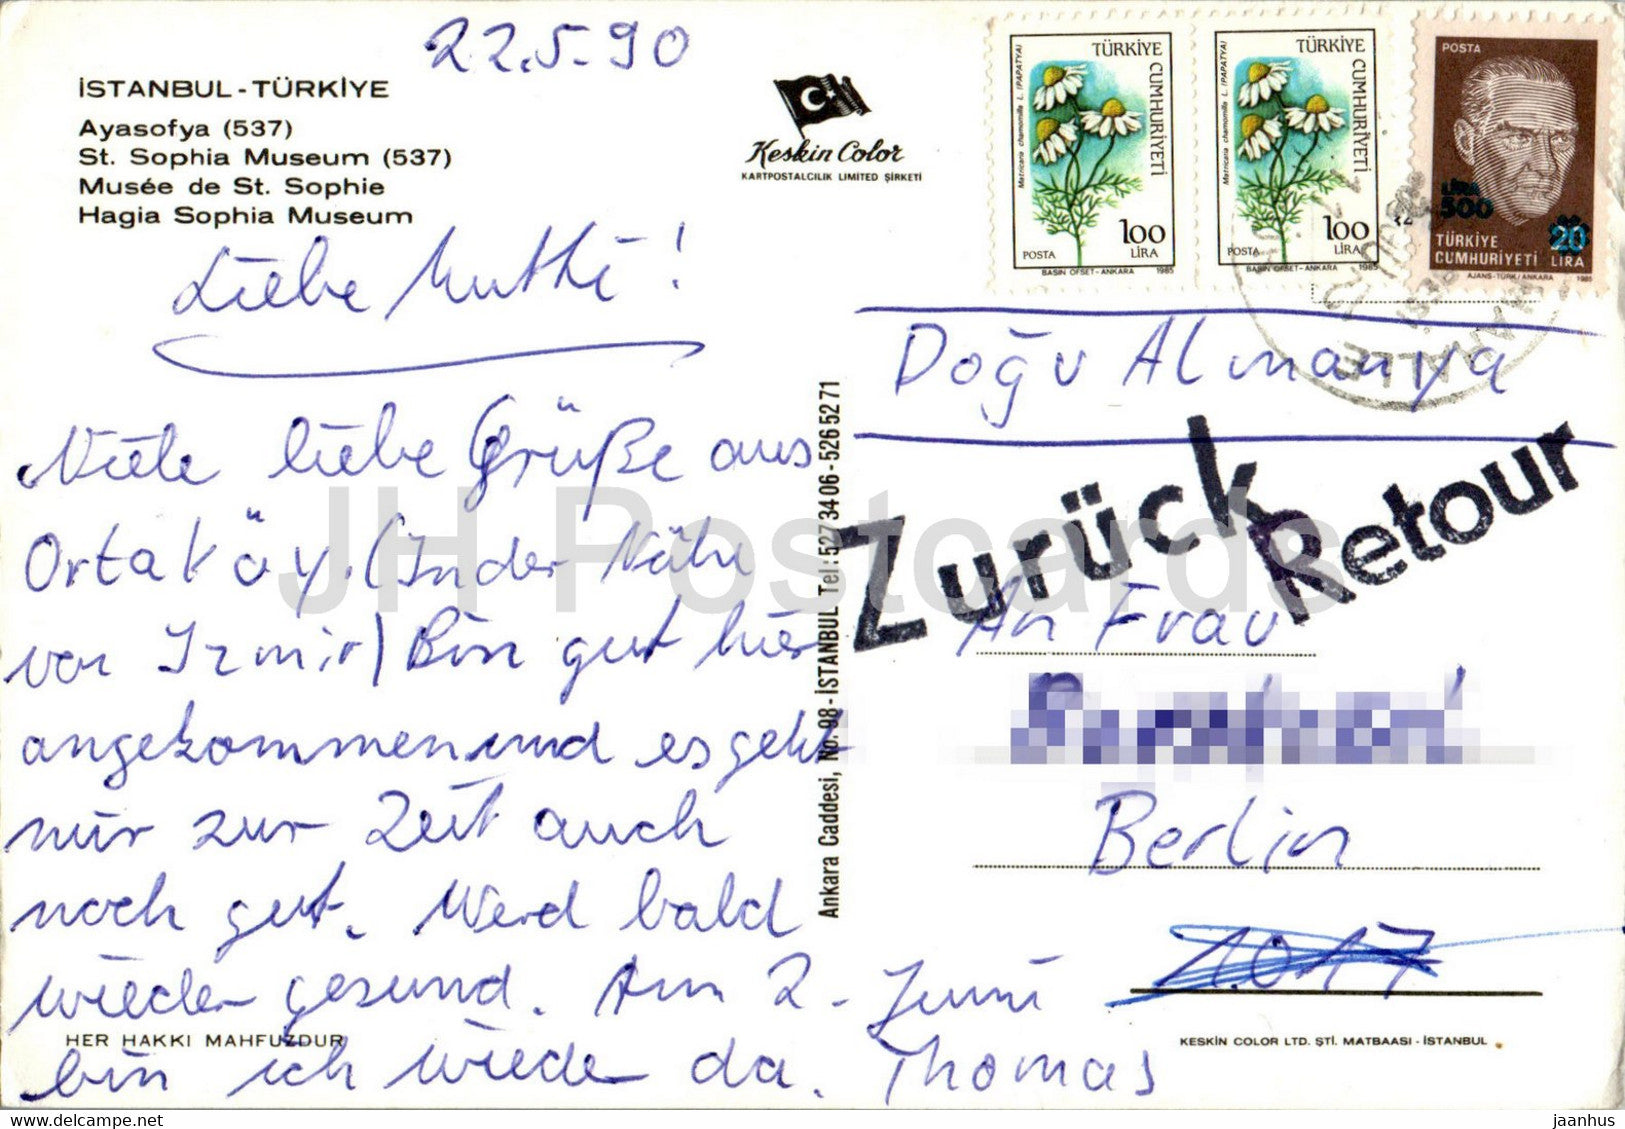 22.5.90
İSTANBUL - TÜRKİYE
Ayasofya (537)
St. Sophia Museum (537)
Musée de St. Sophie
Hagia Sophia Museum
Keskin Color
KARTPOSTALCILIK LIMITED ŞİRKETİ
Matricaria chamomilla L. (PAPATYA)
TÜRKİYE CUMHURİYETİ
100
POSTA LİRA
BASIN OFSET - ANKARA 1985
Matricaria chamomilla L. (PAPATYA)
TÜRKİYE CUMHURİYETİ
100
POSTA LİRA
BASIN OFSET - ANKARA 1985
POSTA
LİRA
500
20
TÜRKİYE
CUMHURİYETİ LİRA
AJANS-TÜRK/ANKARA 1985
Liebe Mutti!
Viele liebe Grüße aus
Ortaköy. (In der Nähe
von Izmir) Bin gut hier
angekommen und es geht
mir zur Zeit auch
noch gut. Werd bald
wieder gesund. Am 2. Juni
bin ich wieder da. Thomas
HER HAKKI MAHFUZDUR
Ankara Caddesi, No. 98 - İSTANBUL Tel: 527 34 06 - 526 52 71
Doğu Almanya
Zurück
Retour
An Frau
Berlin
1017
KESKİN COLOR LTD. ŞTİ. MATBAASI - İSTANBUL
JH Postcards
delcampe.net
jaanhus